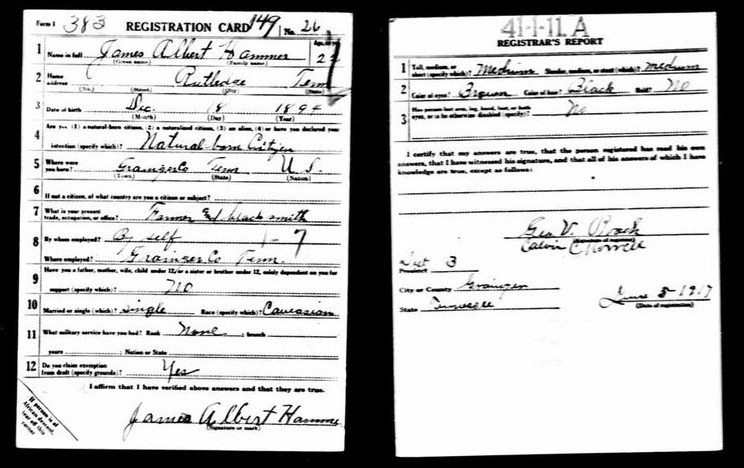 Form 1 383 REGISTRATION CARD 149 No. 26
1 Name in full James Albert Hammer Age, in yrs.
(Given name) (Family name) 2
2 Home address Rutledge Tenn
(No.) (Street) (City) (State)
3 Date of birth Dec. 18 1894
(Month) (Day) (Year)
4 Are you (1) a natural-born citizen, (2) a naturalized citizen, (3) an alien, (4) or have you declared your
intention (specify which)? Natural-born Citizen
5 Where were you born? Grainger Co Tenn U. S.
(Town) (State) (Nation)
6 If not a citizen, of what country are you a citizen or subject?
7 What is your present trade, occupation, or office? Farmer and black smith
8 By whom employed? By self 1-7
Where employed? Grainger Co. Tenn.
9 Have you a father, mother, wife, child under 12, or a sister or brother under 12, solely dependent on you for
support (specify which)? No
10 Married or single (specify which)? Single Race (specify which)? Caucasian
11 What military service have you had? Rank None ; branch
years ; Nation or State
12 Do you claim exemption from draft (specify grounds)? Yes
I affirm that I have verified above answers and that they are true.
James Albert Hammer
(Signature or mark)
If person is of African descent, tear off this corner
41-1-11. A
REGISTRAR'S REPORT
1 Tall, medium, or short (specify which)? Medium Slender, medium, or stout (which)? medium
2 Color of eyes? Brown Color of hair? Black Bald? No
3 Has person lost arm, leg, hand, foot, or both
eyes, or is he otherwise disabled (specify)? No
I certify that my answers are true, that the person registered has read his own
answers, that I have witnessed his signature, and that all of his answers of which I have
knowledge are true, except as follows:
Geo V. Roach
(Signature of registrar)
Calvin C
Precinct Dist 3
City or County Grainger
State Tennessee June 5-1917
(Date of registration)